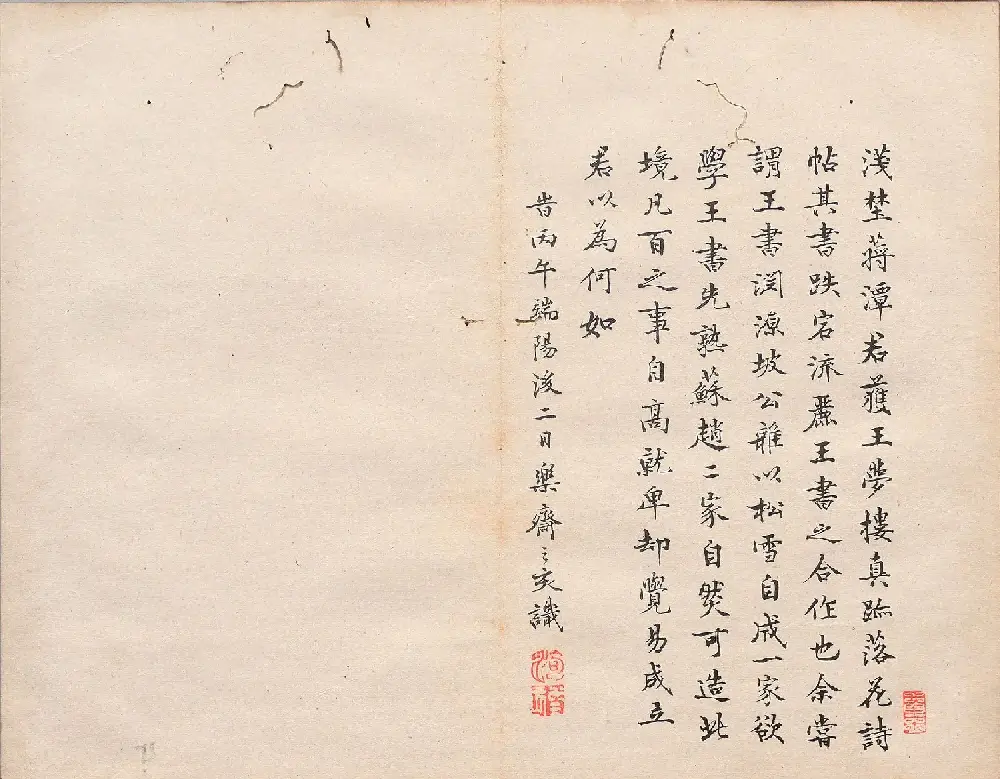 淺埜蒋潭君蒦王夢樓真跡落花詩
帖其書跌宕流麗王書之合作也余嘗
謂王書淵源坡公雜以松雪自成一家欲
學王書先熟蘇趙二家自然可造此
境凡百之事自高就卑却覺易成立
君以為何如
昔丙午端陽後二日樂齋之亥識